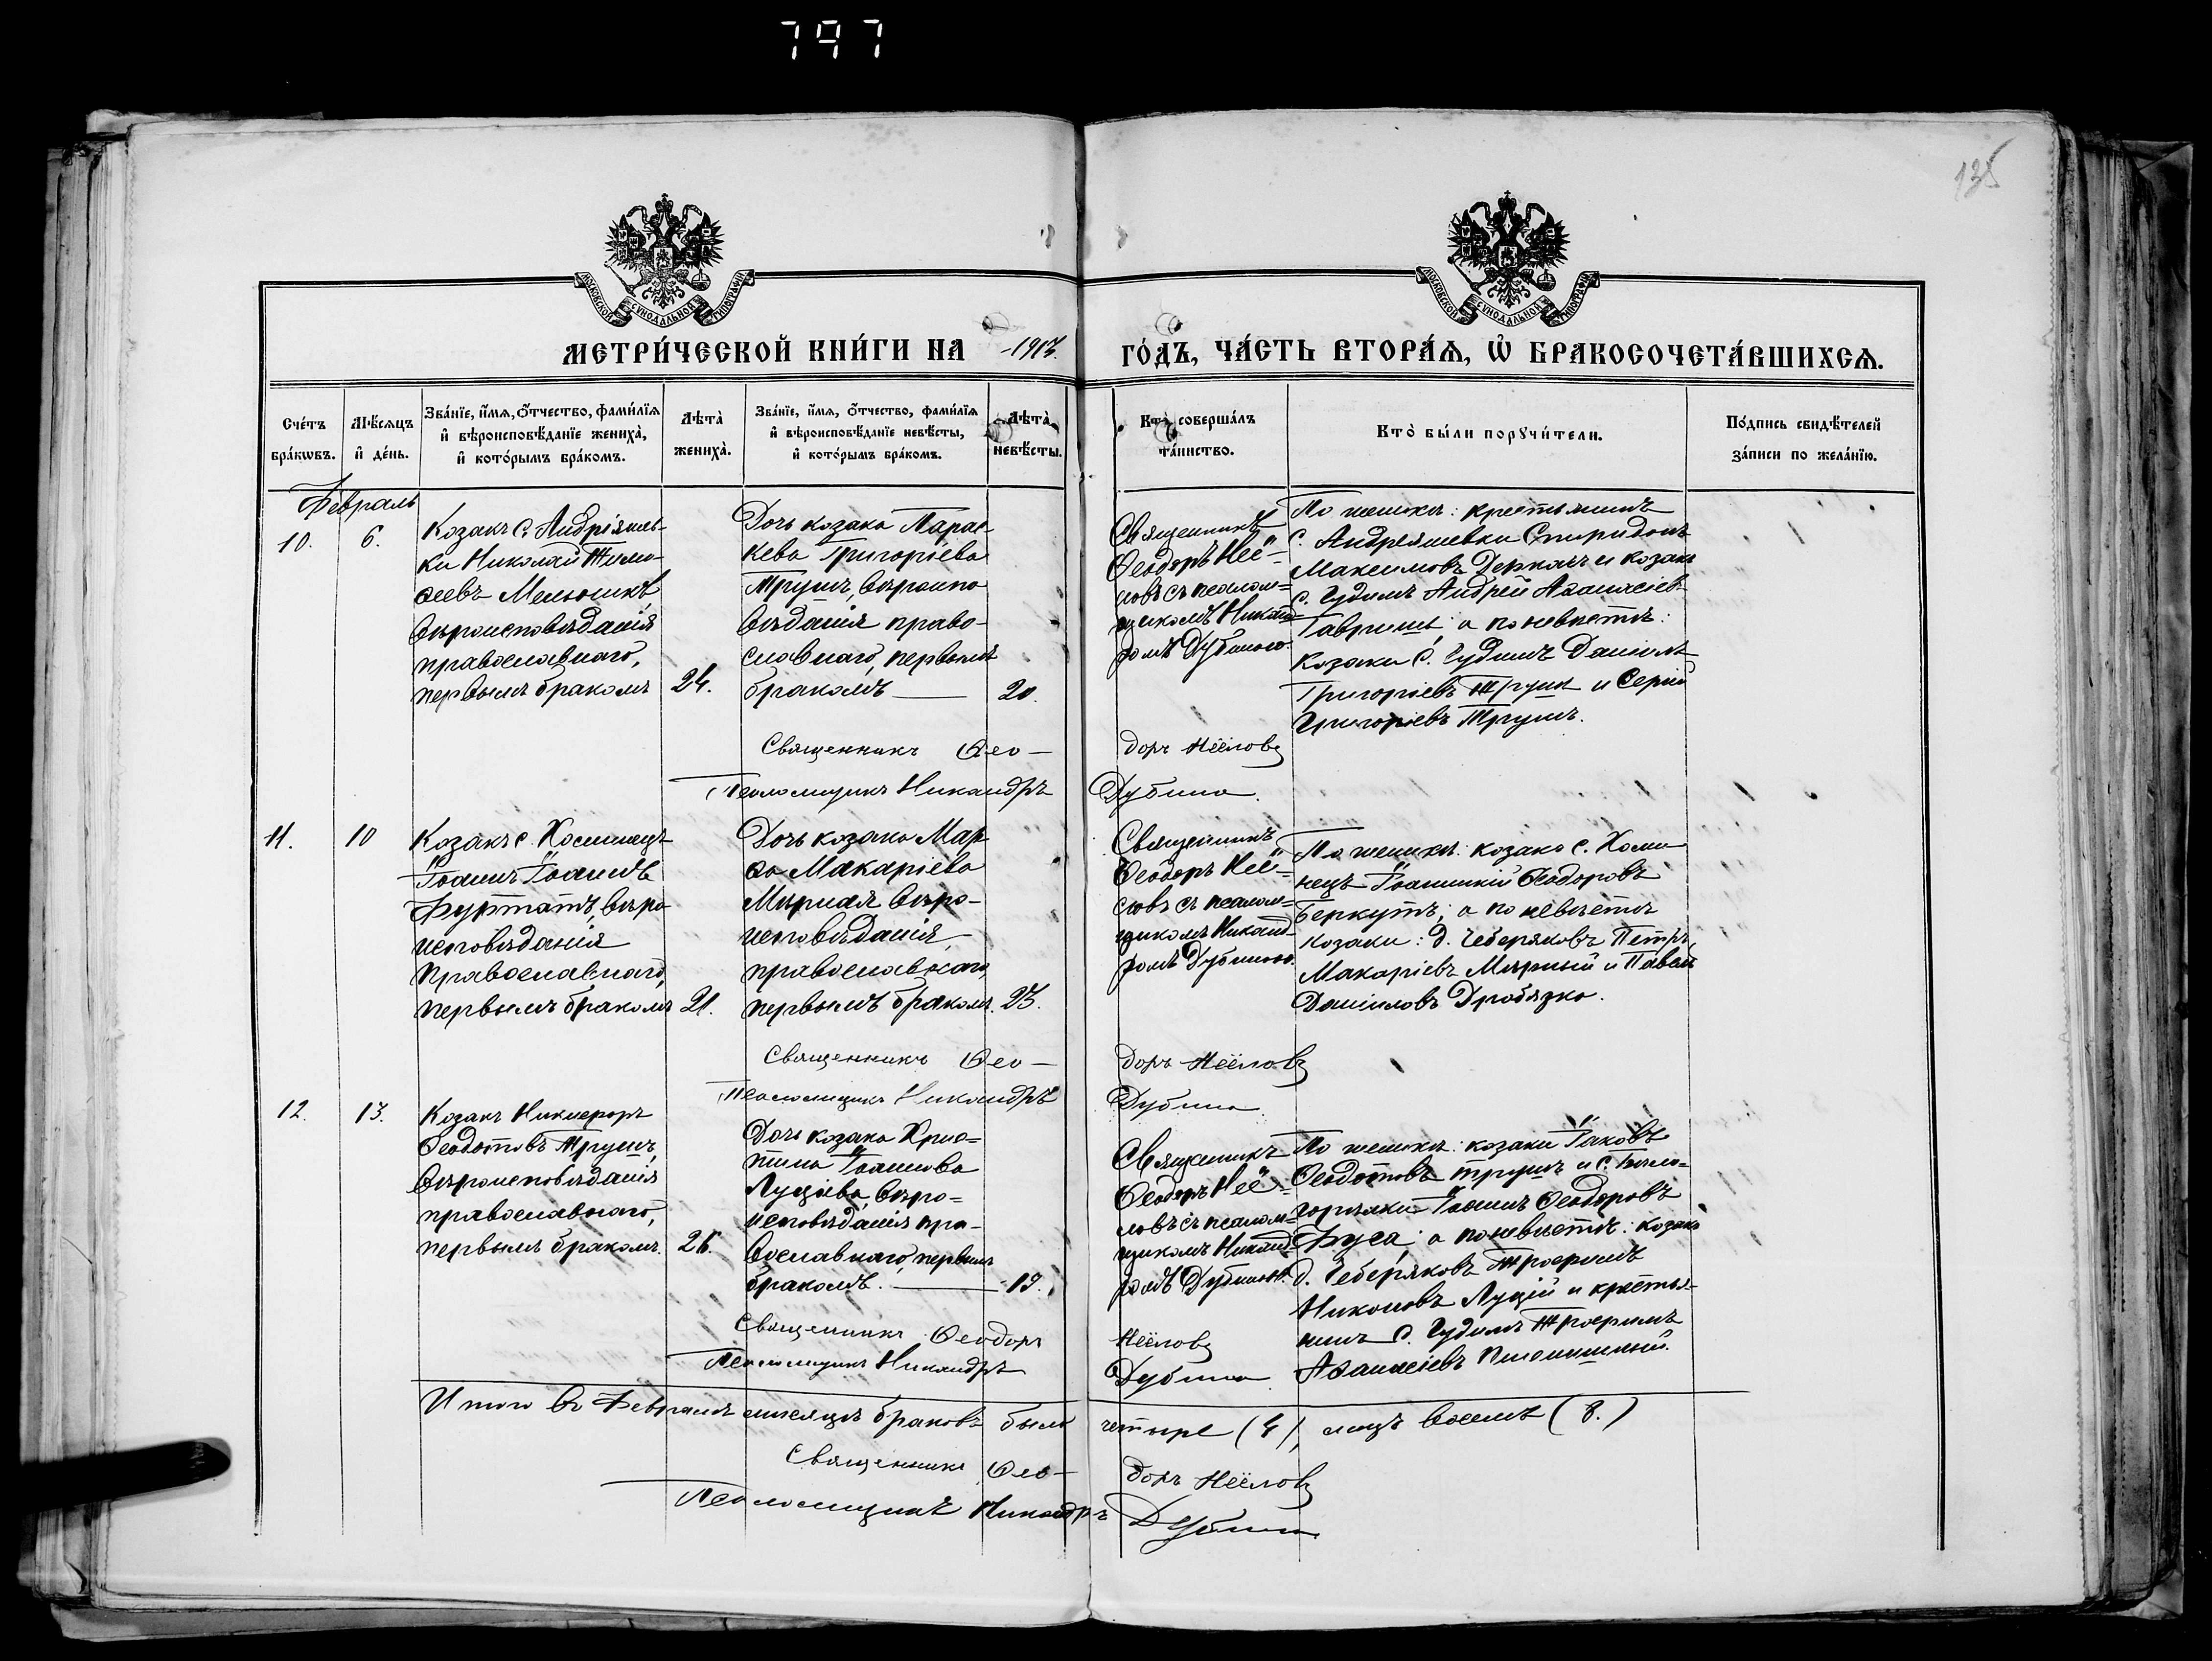 797
135
МОСКОВСКОЙ СѴНОДАЛЬНОЙ ТИПОГРАФІИ
МОСКОВСКОЙ СѴНОДАЛЬНОЙ ТИПОГРАФІИ
МЕТРИ́ЧЕСКОЙ КНИ́ГИ НА -1917.
ГО́ДЪ, ЧА́СТЬ ВТОРА́Ѧ, Ѡ҆ БРАКОСОЧЕТА́ВШИХСѦ.
Сче́тъ
бра́кѡвъ.
Мѣ́сѧцъ
и҆ де́нь.
Зва́нїе, и҆́мѧ, ѻ҆́тчество, фами́лїѧ
и҆ вѣроисповѣ́данїе жениха̀,
и҆ кото́рымъ бра́комъ.
Лѣта̀
жениха̀.
Зва́нїе, и҆́мѧ, ѻ҆́тчество, фами́лїѧ
и҆ вѣроисповѣ́данїе невѣ́сты,
и҆ кото́рымъ бра́комъ.
Лѣта̀
невѣ́сты.
Кто̀ соверша́лъ
та́инство.
Кто̀ бы́ли порꙋчи́тели.
По́дпись свидѣ́телей
за́писи по жела́нїю.
Февраль
10.
6.
Козакъ с. Андріяшев-
ки Николай Тимо-
ѳеевъ Мельникъ,
вѣроисповѣданія
православнаго,
первымъ бракомъ
24.
Дочь козака Парас-
кева Григоріева
Трушъ, вѣроиспо
вѣданія право-
славнаго, первымъ
бракомъ
20.
Священникъ
Ѳеодоръ Неё-
ловъ съ псалом-
щикомъ Никанд-
ромъ Дубиною.
По женихѣ: крестьянинъ
с. Андреяшевки Спиридонъ
Максимовъ Деркачъ и козакъ
с. Гудимъ Андрей Аѳанасіев
Гавришъ; а по невѣстѣ:
козаки с. Гудимъ Даніилъ
Григоріевъ Трушъ и Сергій
Григоріевъ Трушъ.
Священникъ Ѳео-
доръ Неёловъ
Псаломщикъ Никандръ
Дубина.
11.
10
Козакъ с. Хоминецъ
Іоаннъ Іоанновъ
Фурматъ, вѣро
исповѣданія
православнаго,
первымъ бракомъ
21.
Дочь козака Мар
ѳа Макаріева
Мирная вѣро-
исповѣданія
православнаго
первымъ бракомъ.
23.
Священникъ
Ѳеодоръ Неё-
ловъ съ псалом-
щикомъ Никанд-
ромъ Дубиною.
По женихѣ: козакъ с. Хоми
нецъ Іоанникій Ѳеодоровъ
Беркутъ; а по невѣстѣ
козаки: д. Чеберяковъ Петръ
Макаріевъ Мирный и Павелъ
Даніиловъ Дробязко.
Священникъ Ѳео-
доръ Неёловъ
Псаломщикъ Никандръ
Дубина.
12.
13.
Козакъ Никифоръ
Ѳеодотовъ Трушъ,
вѣроисповѣданія
православнаго,
первымъ бракомъ.
Дочь козака Хрис-
тина Іоаннова
Луцієва, вѣро-
исповѣданія пра-
вославнаго, первымъ
бракомъ.
19.
Священникъ
Ѳеодоръ Неё-
ловъ съ псалом-
щикомъ Никанд-
ромъ Дубиною.
По женихѣ: козаки Іаковъ
Ѳеодотовъ Трушъ и с. Бѣло-
горилки Іоаннъ Ѳеодоровъ
Фуса; а по невѣстѣ: козакъ
д. Чеберяковъ Трофимъ
Никоновъ Луцій и крестья-
нинъ с. Гудимъ Трофимъ
Аѳанасіевъ Пшеничный.
Священникъ Ѳеодоръ
Неёловъ
Псаломщикъ Никандръ
Дубина.
Итого въ Февралѣ мѣсяцѣ браковъ было
четыре (4), лицъ восемь (8.)
Священникъ Ѳео-
доръ Неёловъ
Псаломщикъ Никандръ
Дубина